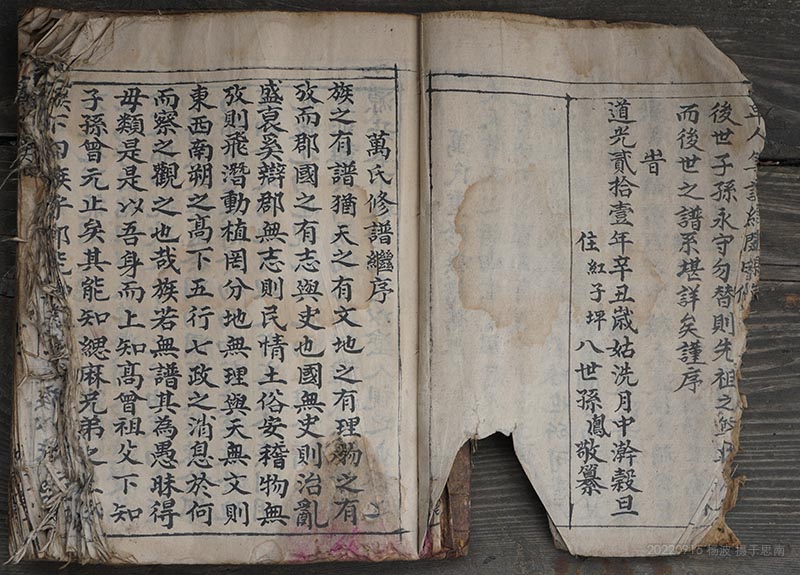 後世子孫永守勿替則先祖之
而後世之譜系堪詳矣謹序
旹
道光貳拾壹年辛丑歲姑洗月中澣穀旦
住紅子坪八世孫鳳敬纂
萬氏修譜繼序
族之有譜猶天之有文地之有理物之有
攷而郡國之有志與史也國無史則治亂
盛衰奚辯郡無志則民情土俗安稽物無
攷則飛潛動植罔分地無理與天無文則
東西南朔之髙下五行七政之消息於何
而察之觀之也哉族若無譜其為愚昧得
毋類是是以吾身而上知髙曾祖父下知
子孫曾元止矣其能知緦麻兄弟之
20220916 杨波 摄于思南